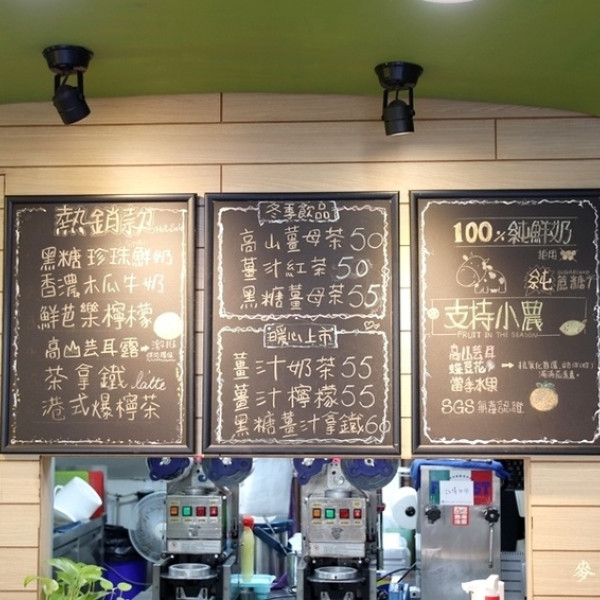 熱銷款
黑糖珍珠鮮奶
香濃木瓜牛奶
鮮芭樂檸檬
高山芸耳露
茶拿鐵 latte
港式爆檸茶
冬季飲品
高山薑母茶50
薑汁紅茶50
黑糖薑母茶55
暖心上市
薑汁奶茶55
薑汁檸檬55
黑糖薑汁拿鐵60
100%純鮮奶
純蔗糖
支持小農
FRUIT IN THE SEASON
高山芸耳
蝶豆花
當季水果
SGS無毒認證
麥